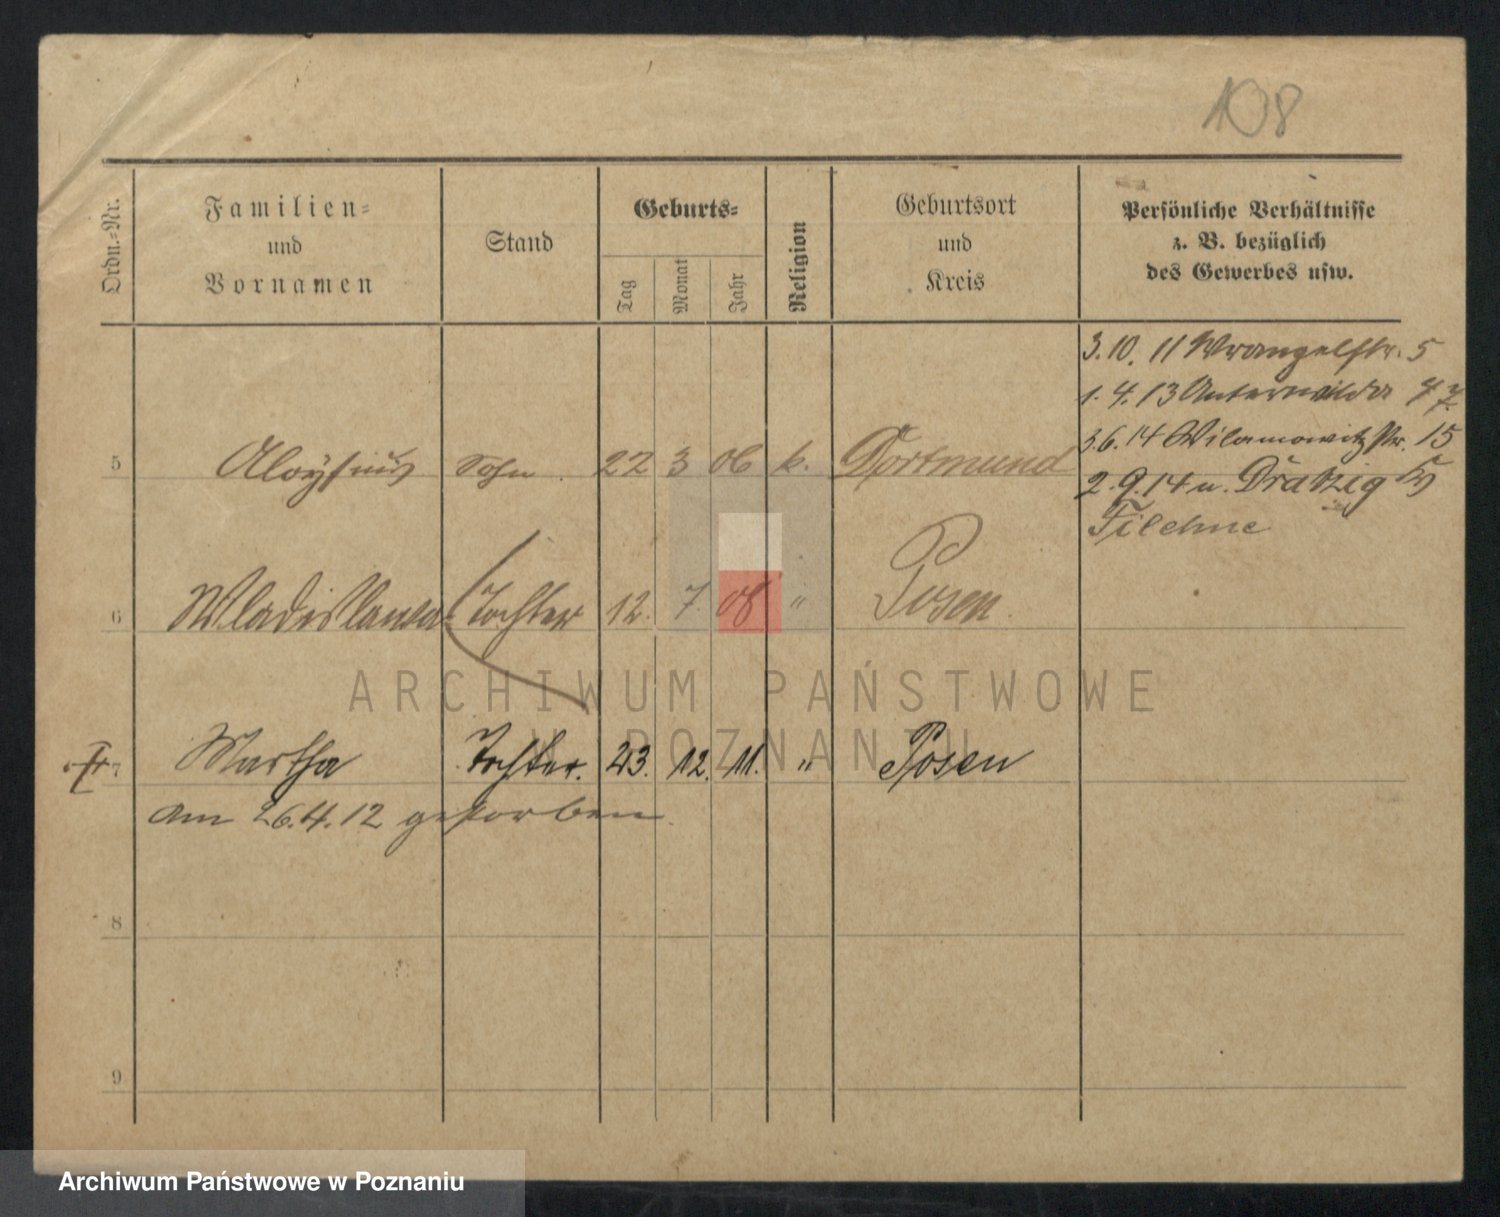 108
Ordn.-Nr.
Familien-
und
Vornamen
Stand
Geburts-
Tag
Monat
Jahr
Religion
Geburtsort
und
Kreis
Persönliche Verhältnisse
z. B. bezüglich
des Gewerbes usw.
3.10.11 Wrangelstr. 5
1.4.13 Unterwilda 47
3.6.14 Wilamowitzstr. 15
5 Aloysius Sohn 22 3 06 k. Dortmund
2.9.14 n. Dratzig
Filehne
6 Wladislawa Tochter 12. 7. 08 " Posen
ARCHIWUM PAŃSTWOWE
W POZNANIU
7 Martha Tochter. 23. 12. 11. " Posen
am 26.4.12 gestorben.
8
9
Archiwum Państwowe w Poznaniu